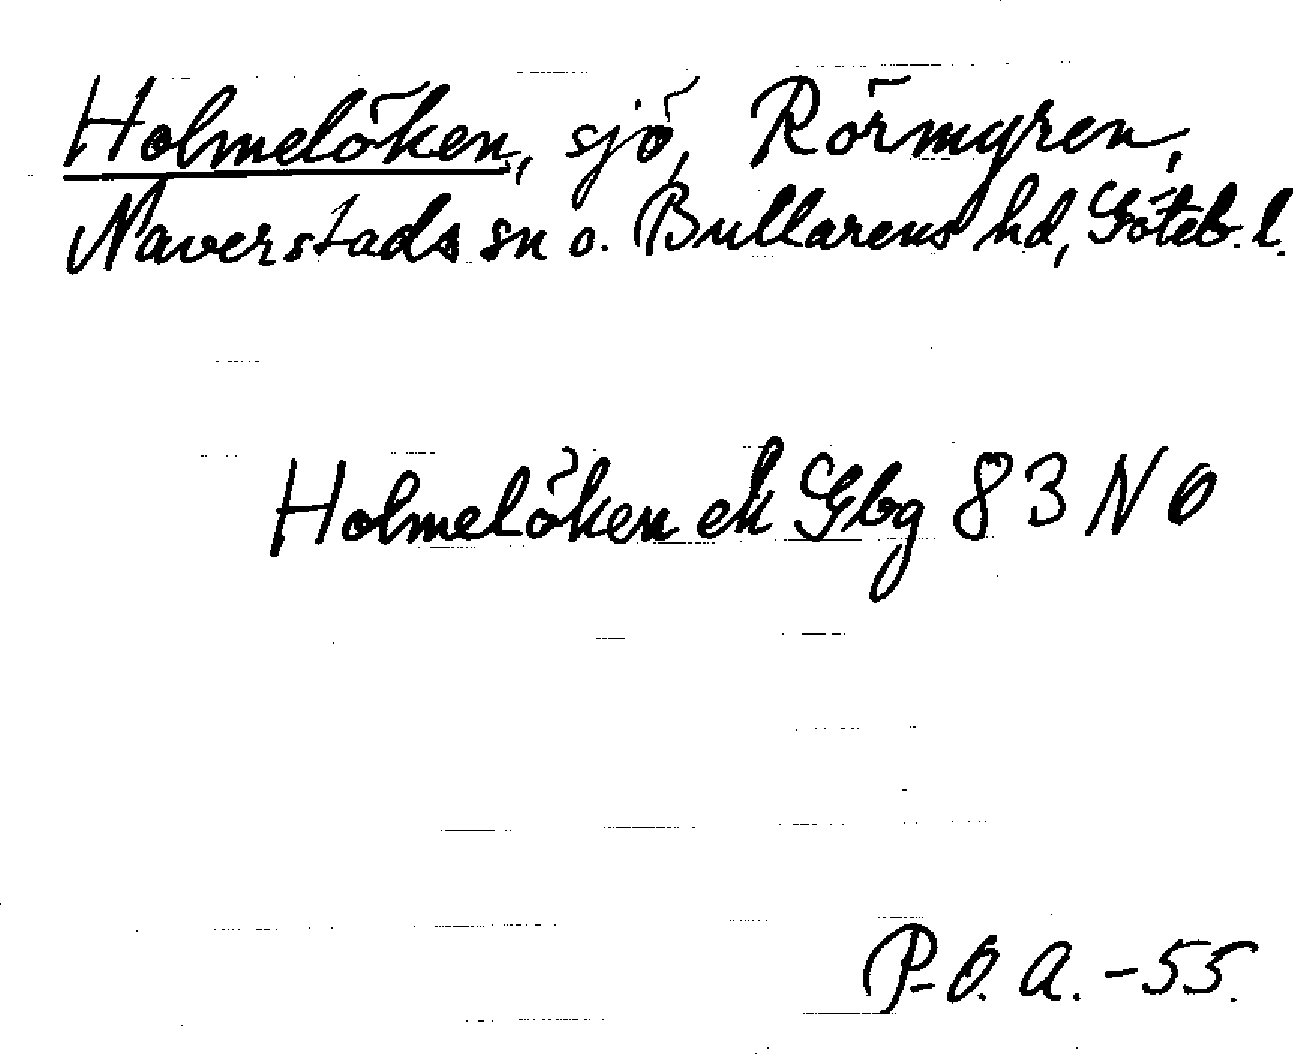 Holmelöken, sjö, Rörmyren,
Naverstads sn o. Bullarens hd, Göteb. l.
Holmelöken ek Gbg 83 NO
P-O. A. -55.